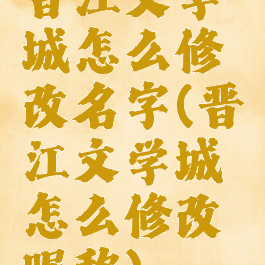 晋江文学
城怎么修
改名字(晋
江文学城
怎么修改
昵称)